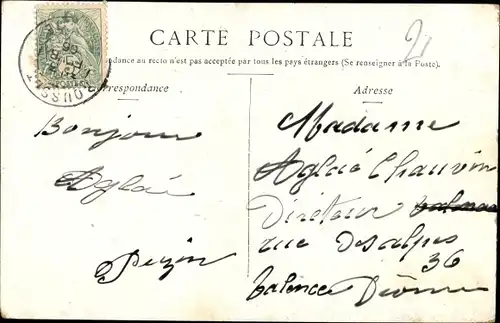 CARTE POSTALE
21
ndance au recto n'est pas acceptée par tous les pays étrangers (Se renseigner à la Poste).
Correspondance
Adresse
Bonjour
Aglaé
Madame
Aglaé Chauvin
Directeur
rue des alpes
36
Valence Drôme